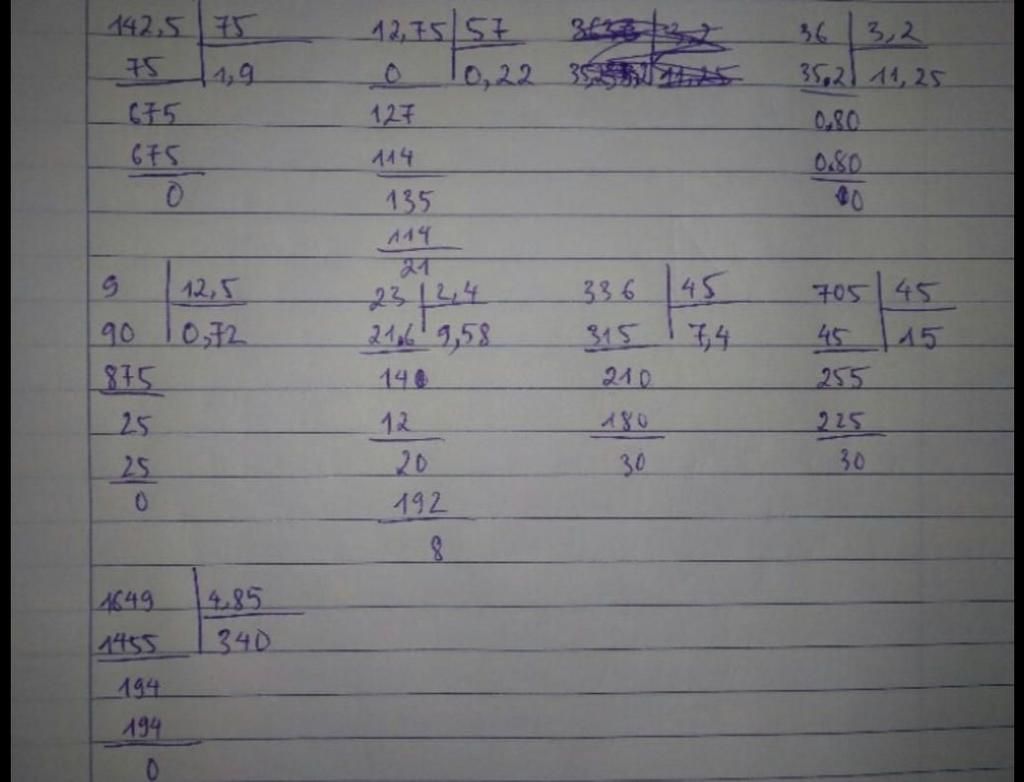 142,5 75 12,75 57 36 3,2
75 1,9 0 0,22 35.2 11,25
675 127 0.80
675 114 0.80
0 135 0
114
21
9 12,5 23 2,4 336 45 705 45
90 0,72 21.6 9,58 315 7,4 45 15
875 140 210 255
25 12 180 225
25 20 30 30
0 192
8
1649 4,85
1455 340
194
194
0